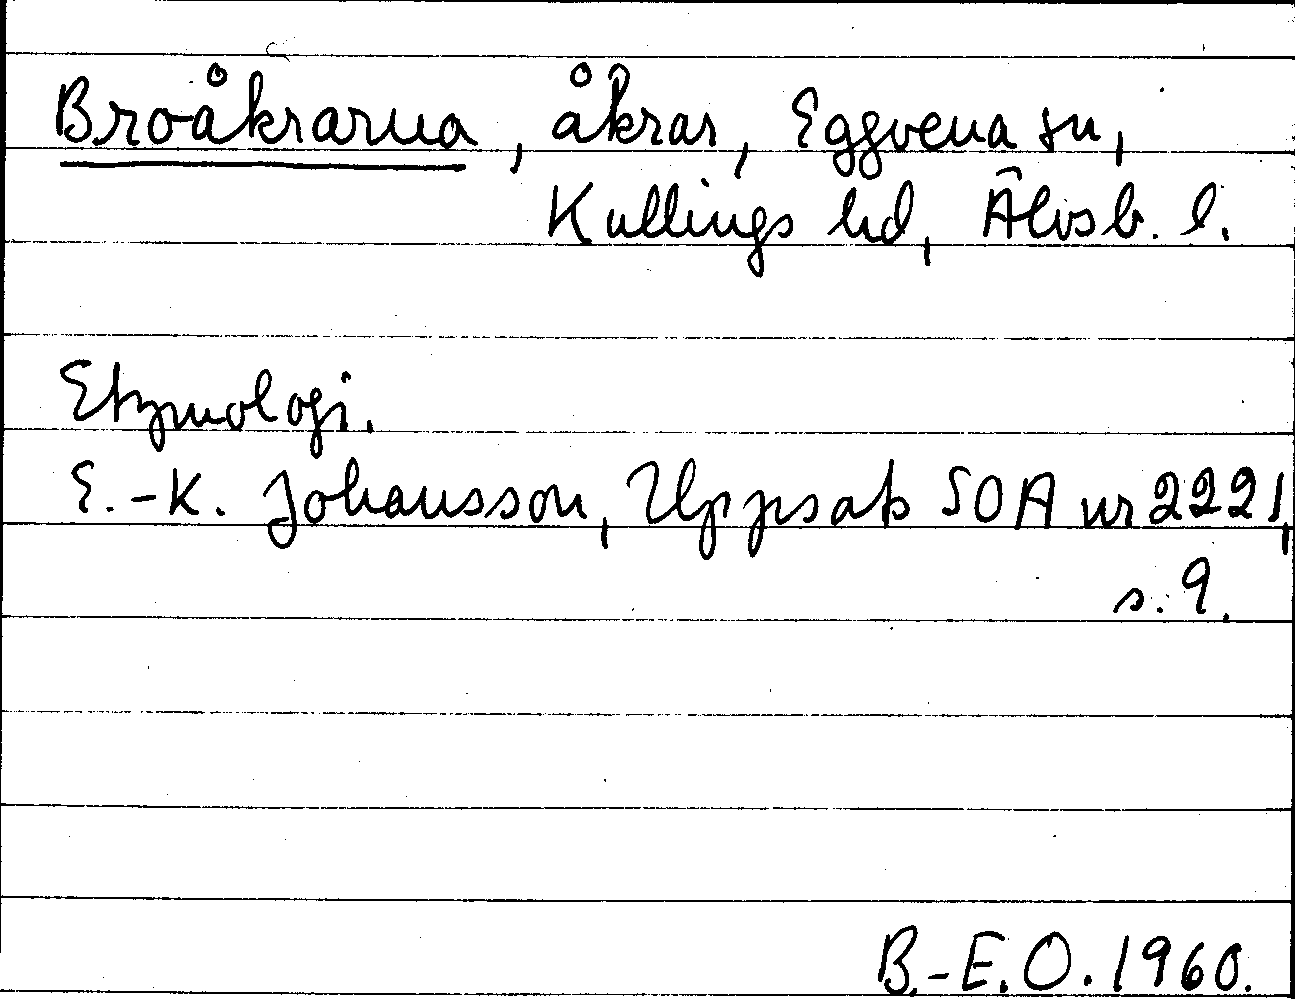 Broåkrarna, åkrar, Eggvena sn,
Kullings hd, Älvsb. l.
Etymologi.
E.-K. Johansson, Uppsats SOA nr 2221,
s. 9.
B.-E.O. 1960.